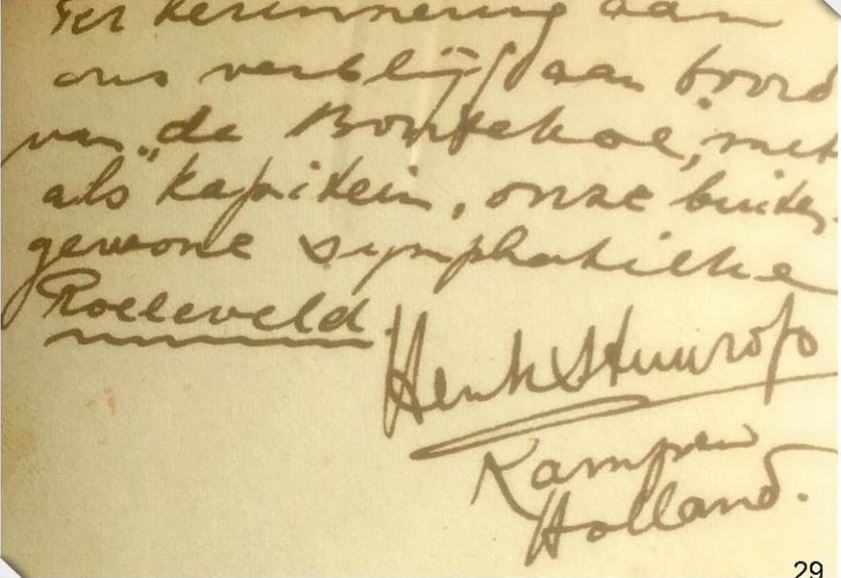 Ter herinnering aan
ons verblijf aan boord
van "de Bontekoe", met
als kapitein, onze buiten-
gewone symphatieke
Roeleveld.
Henk Stuurop
Kampen
Holland.
29